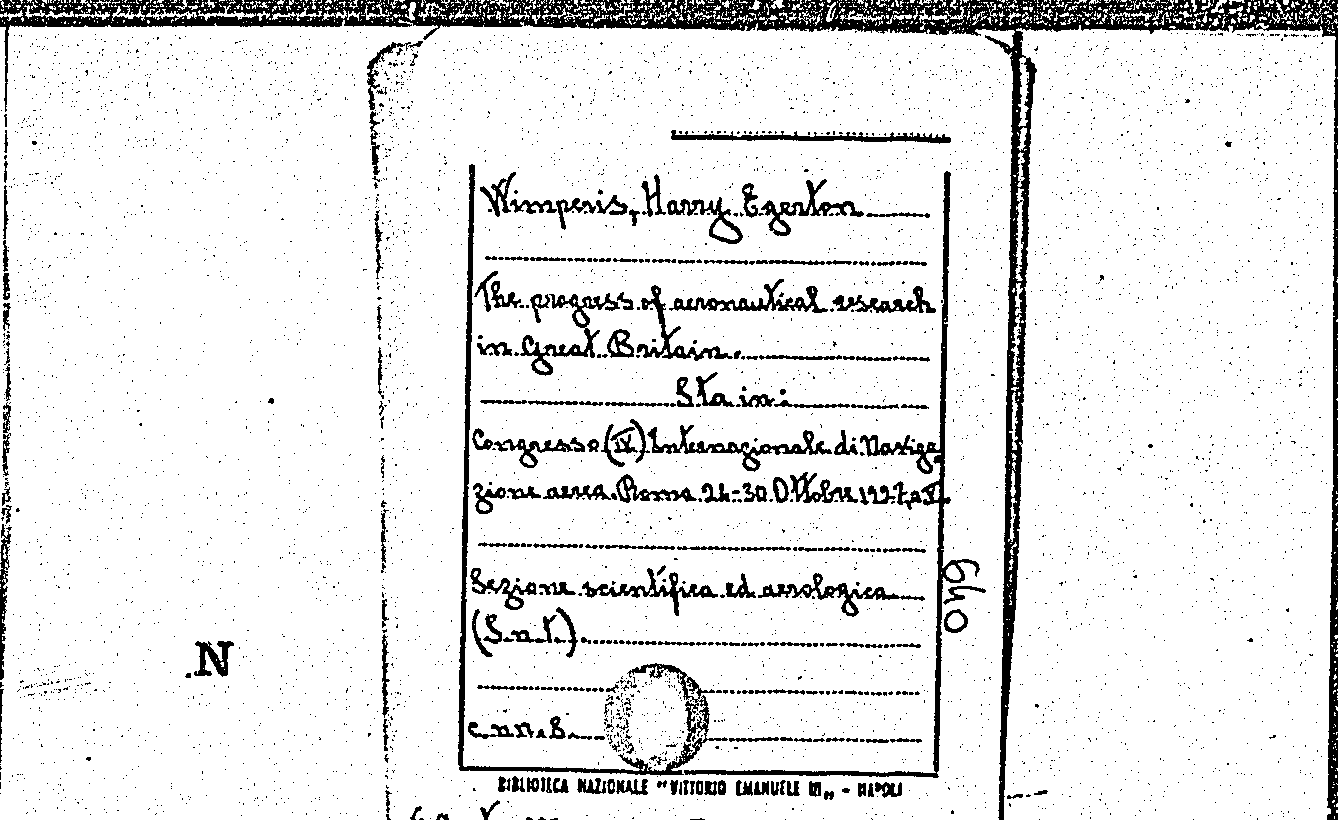 Wimperis, Harry Egerton
The progress of aeronautical research
in Great Britain.
Sta in:
Congresso (IV) Internazionale di Naviga
zione aerea. Roma 24-30 Ottobre 1927, a V.
640
Sezione scientifica ed aerologica
(S.n.t.).
N
c.nn.8.
BIBLIOTECA NAZIONALE "VITTORIO EMANUELE III„ - NAPOLI